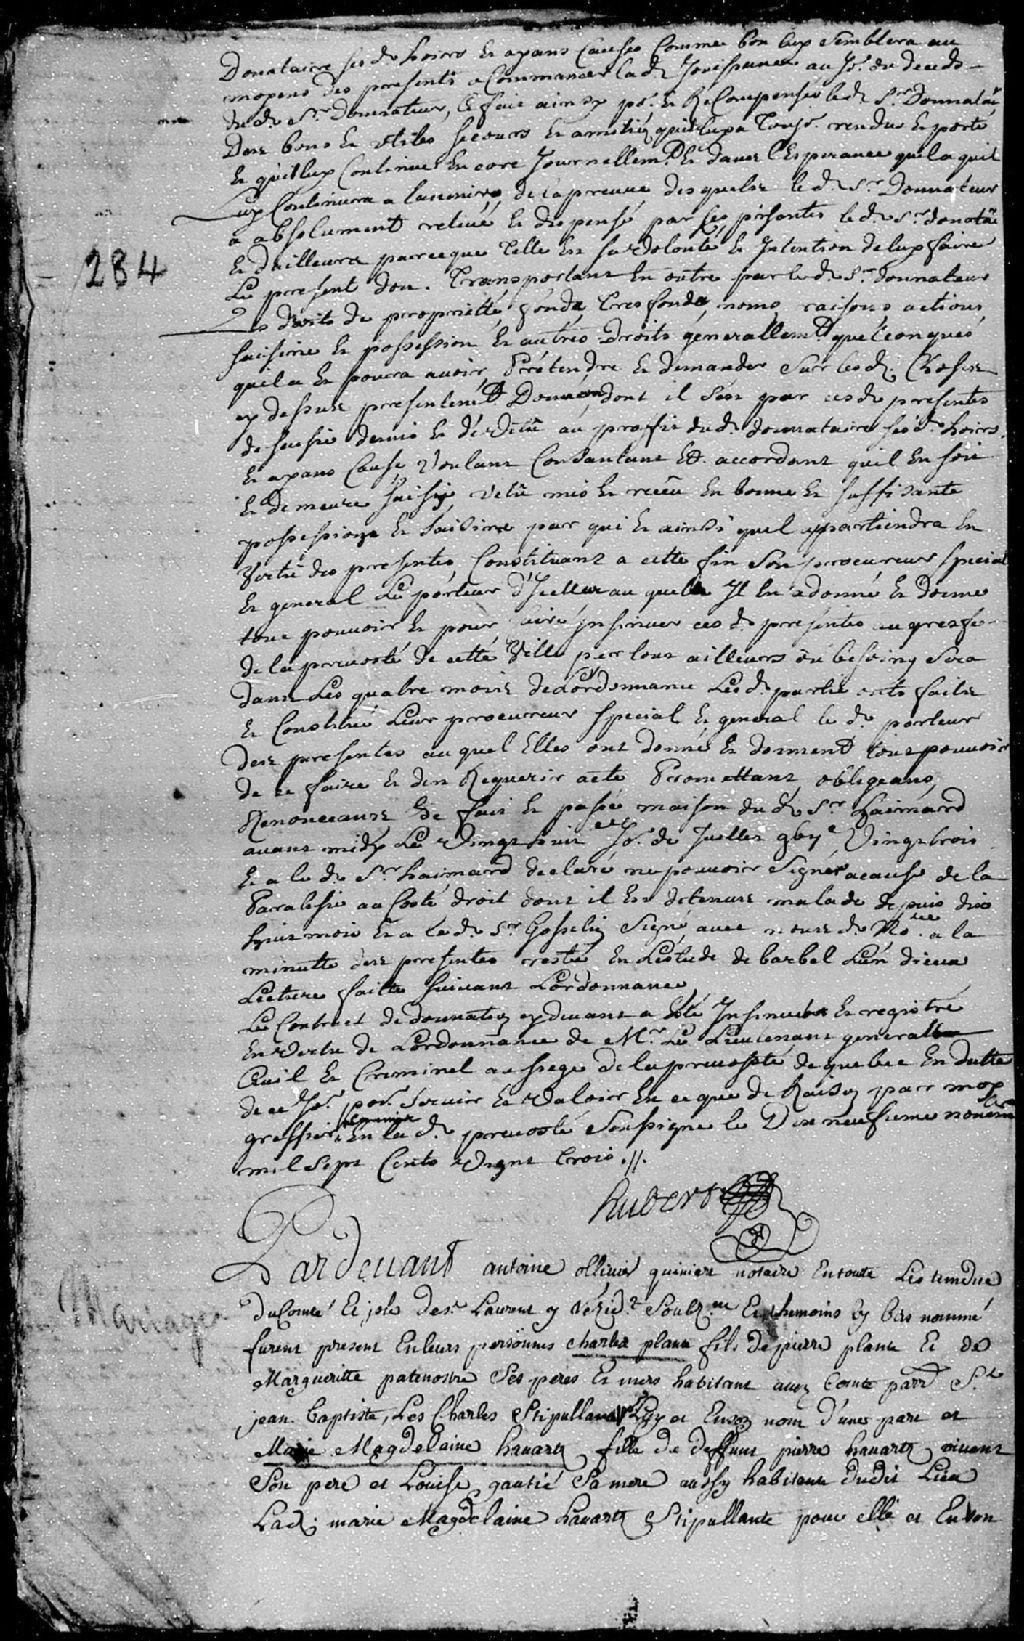 Donataire ses d. hoirs Et ayans Causes Comme bon luy semblera au
moyens des presents a Commancer lad. Jouissance au Jr. du deceds
du d. Sr. Donnateur, Ce fait ainsy pr. Et Recompenser led. Sr. Donnatre
Des bons Et utiles secours Et amitiez quil luy a Toujr. rendus Et porté
Et quil luy Continue Encore Journellemt. Et dans l'Esperance que la quil
Luy Continuera a lavenir, de la preuve desquels le d. Sr. Donnateur
a absolument relevé Et dispensé par ses presentes le d. Sr. donatre
Et dailleurs parceque Telle Est sa volonté Et Intention de luy faire
284
Le present don. Transportant En outre par le d. Sr. donnateur
Ts droits de proprietté, fonds, tresfonds, noms, raisons actions
saisine Et possession Et autres Droits generallemt. quelconques
quil a Et poura avoir Prétendre Et demander sur lesd. Choses
cy dessus presentemt. Donnees dont il sest par ces d. presentes
desaisie demis Et dévétu au proffit du d. donnataire ses d. hoirs
Et ayans Cause, Voulant Consantant Et accordant quil En soit
Et demeure saisy vétu mis Et receu En bonne Et suffisante
possession Et saisine par qui Et ainsi quil appartiendra En
Vertu des presentes, Constituant a cette fin son procureur special
Et general Le porteur d'Icelles au quel Jl En a donné Et donne
tout pouvoir Et pour faire insinuer ces d. presentes au greffe
de la prevosté de cette Ville par tout ailleurs ou besoing sera
dans Les quatre mois de Lordonnance Les d. partie ont faits
Et Constitué Leur procureur special Et general le d. porteur
des presentes au quel Elles ont donné Et donnent tout pouvoir
de ce faire Et den Requerir acte Promettant, obligeans,
Renonceans &c fait Et passé maison du d. Sr. haimard
avant midy Le Vingt huit Jr. de Juillet gbye Vingt trois
Et a le d. Sr. haimard declaré ne pouvoir Signer a cause de la
Paralisie au Costé droit dont il Est detenus malade depuis dix
huit mois Et a le d. Sr. Gosselin Signé avec nous d. Nore. a la
minutte des presentes restée En Lestude de barbel Lun dieux
Lecture faitte suivant Lordonnance
Le Contract de donnation cydevant a Esté Insinué Et Enregistré
En vertu de Lordonnance de Mr. Le Lieutenant general
Civil Et Criminel au siege de la prevosté de quebec En datte
de ce Jr. por. servir Et valoir En ce que de Raison par moy
greffier En la d. prevosté soussigné le Dix neufieme novembre
mil sept Cents vingt trois .//.
Rubert
Pardevant antoine ollivier quiniere notaire Entoute Lestendue
Mariage
du Comté Et isle de st. Laurent y résidt. soubs.ne Et themoins cy bas nommé
furent present En leurs personnes charles plante fils de pierre plante Et de
Margueritte patenostre ses peres Et mere habitant audt Comte parr. St.
jean baptiste, Les Charles stipullant Luy et En son nom d'une part et
Marie Magdelaine havard fille de deffunt pierre havard vivant
son pere et Louise gautié sa mere aussy habitante dudit Lieu
Lad. marie Magdelaine havard stipullante pour elle et En son